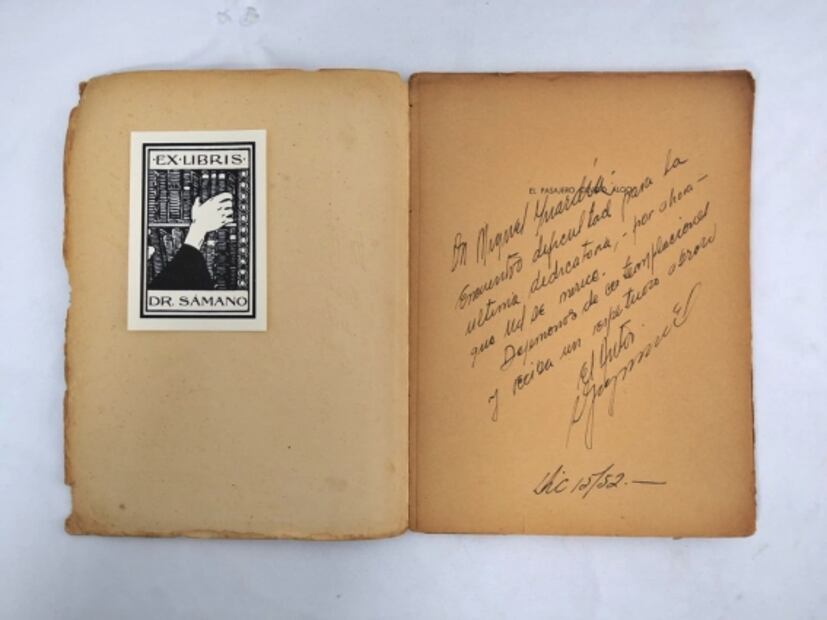 ·EX·LIBRIS·
DR. SÁMANO
EL PASAJERO ALGO
Dn Miguel Guardia.
Encuentro dificultad para la
ultima dedicatoria, - por ahora -
que Ud se merece.
Dejemonos de contemplaciones
y reciba un respetuoso abrazo
El Autor
Dic 15/52. —